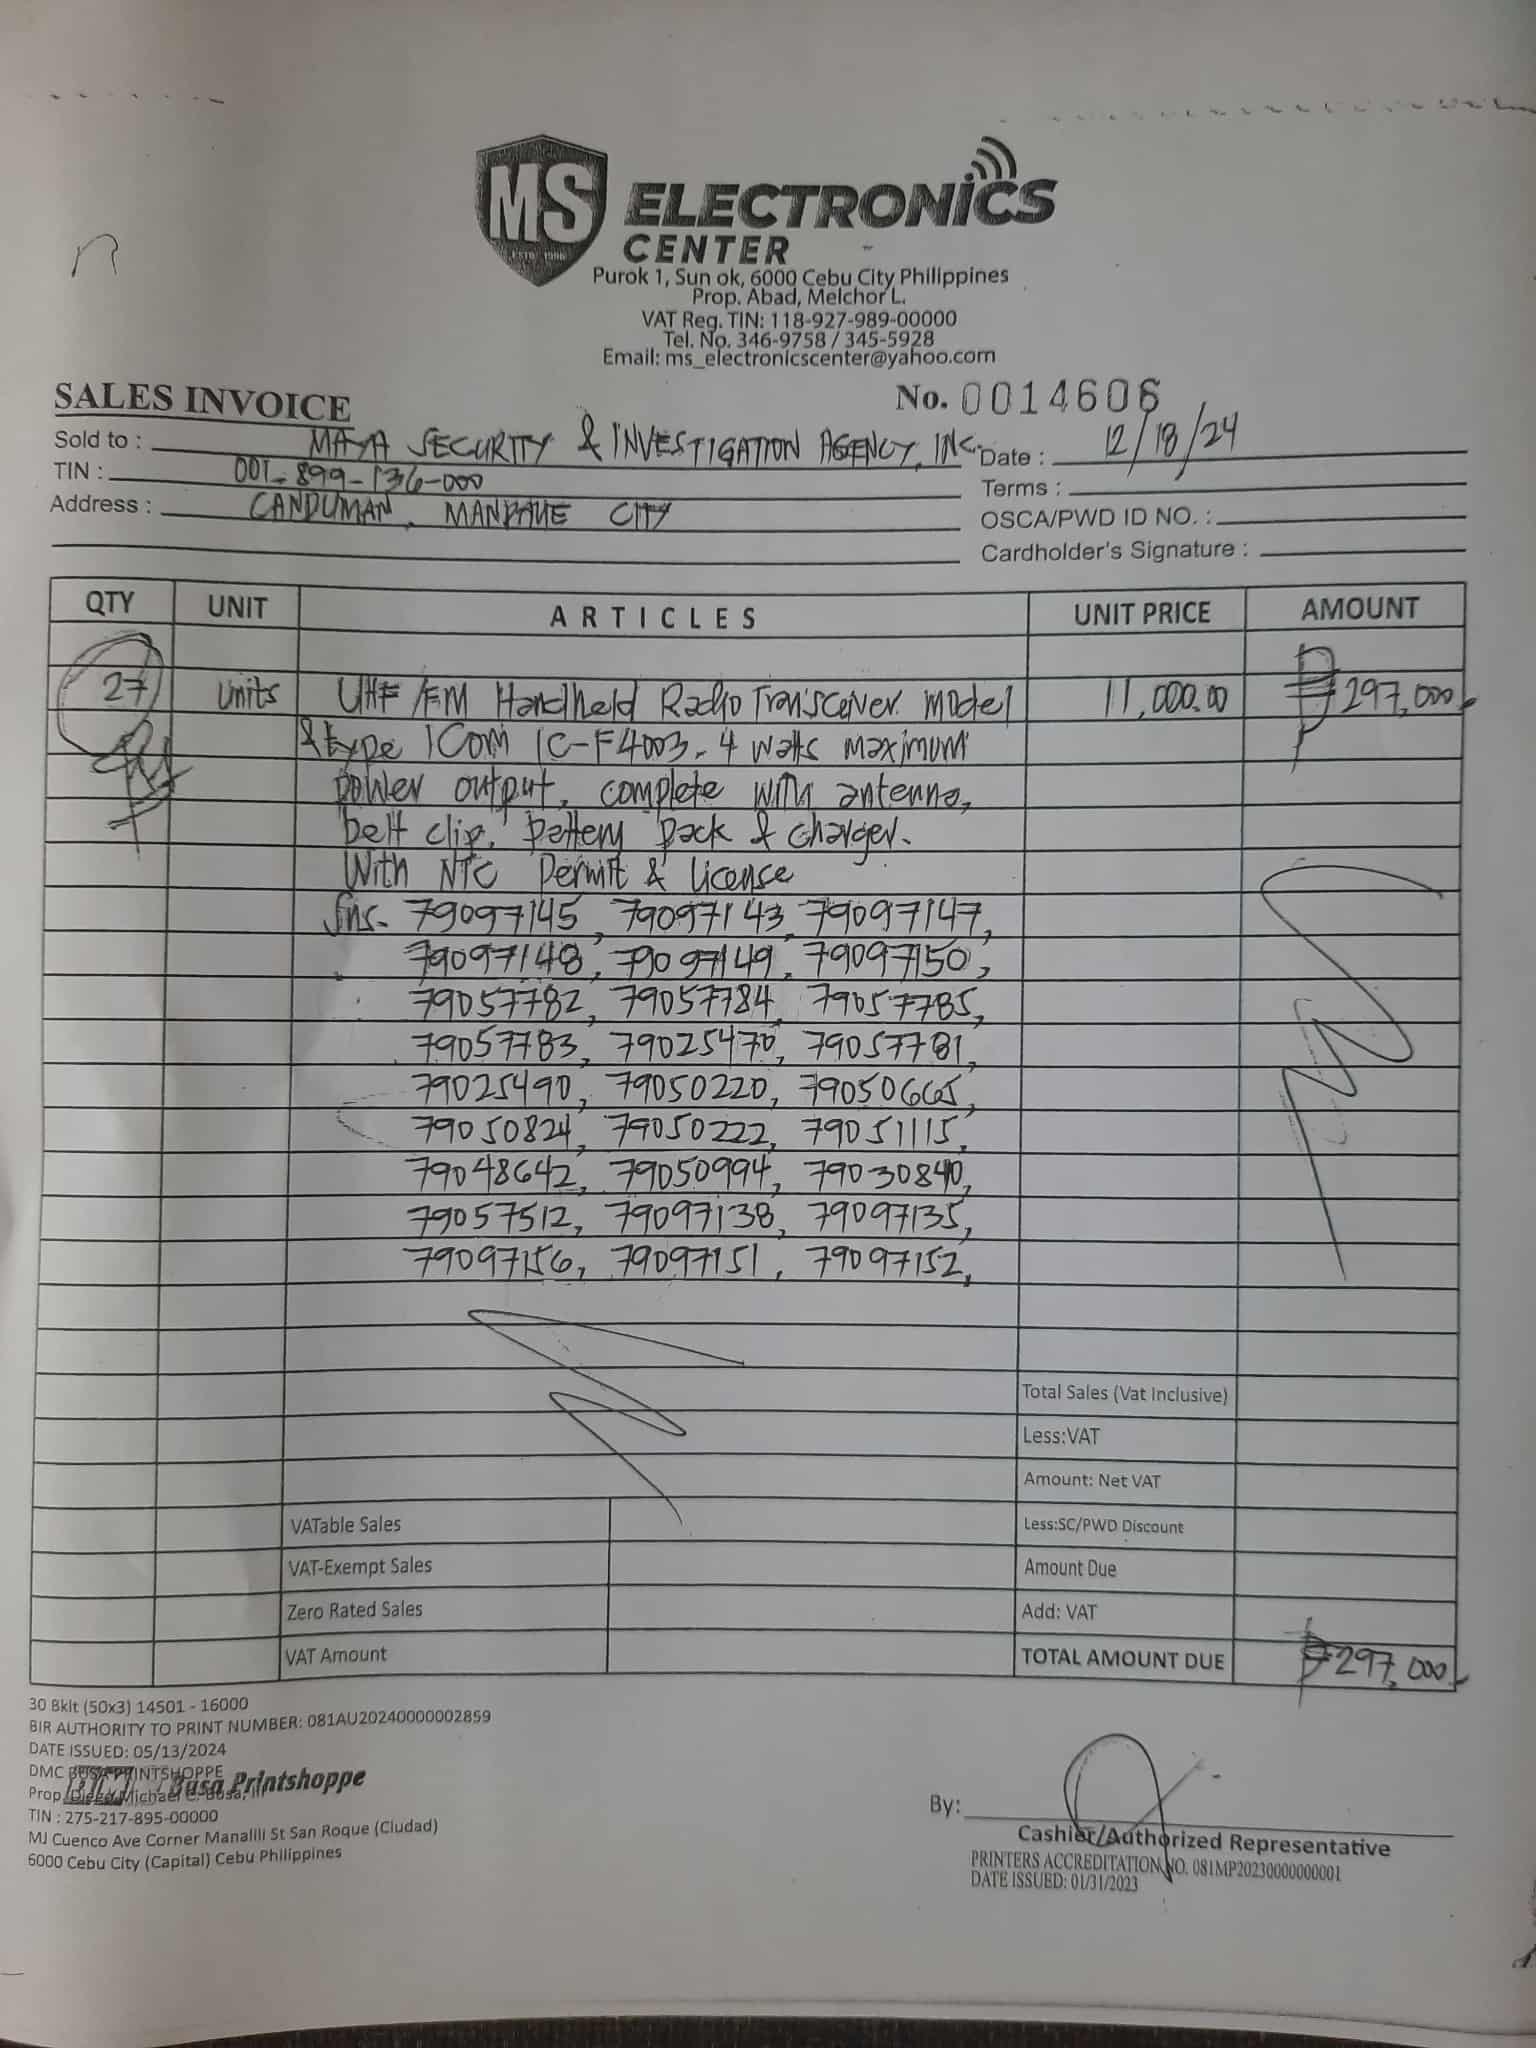 MS ELECTRONICS
CENTER
Purok 1, Sun ok, 6000 Cebu City Philippines
Prop. Abad, Melchor L.
VAT Reg. TIN: 118-927-989-00000
Tel. No. 346-9758 / 345-5928
Email: ms_electronicscenter@yahoo.com
SALES INVOICE No. 0014606
Sold to : MAYA SECURITY & INVESTIGATION AGENCY, INC. Date : 12/18/24
TIN : 001-899-136-000 Terms :
Address : CANDUMAN, MANDAUE CITY OSCA/PWD ID NO. :
Cardholder's Signature :
QTY UNIT ARTICLES UNIT PRICE AMOUNT
27 units UHF/FM Handheld Radio Transceiver. Model 11,000.00 ₱297,000.-
& type ICom IC-F4003. 4 watts maximum
power output, complete with antenna,
belt clip, battery pack & charger.
With NTC Permit & License
Sns. 79097145, 79097143, 79097147,
79097148, 79097149, 79097150,
79057782, 79057784, 79057785,
79057783, 79025470, 79057781,
79025490, 79050220, 79050665,
79050824, 79050222, 79051115,
79048642, 79050994, 79030840,
79057512, 79097138, 79097135,
79097156, 79097151, 79097152,
Total Sales (Vat Inclusive)
Less:VAT
Amount: Net VAT
VATable Sales Less:SC/PWD Discount
VAT-Exempt Sales Amount Due
Zero Rated Sales Add: VAT
VAT Amount TOTAL AMOUNT DUE ₱297,000.-
30 Bklt (50x3) 14501 - 16000
BIR AUTHORITY TO PRINT NUMBER: 081AU20240000002859
DATE ISSUED: 05/13/2024
DMC BUSA PRINTSHOPPE
Busa Printshoppe
Prop. Diego Michael C. Busa, III
TIN : 275-217-895-00000
MJ Cuenco Ave Corner Manalili St San Roque (Ciudad)
6000 Cebu City (Capital) Cebu Philippines
By:
Cashier/Authorized Representative
PRINTERS ACCREDITATION NO. 081MP20230000000001
DATE ISSUED: 01/31/2023